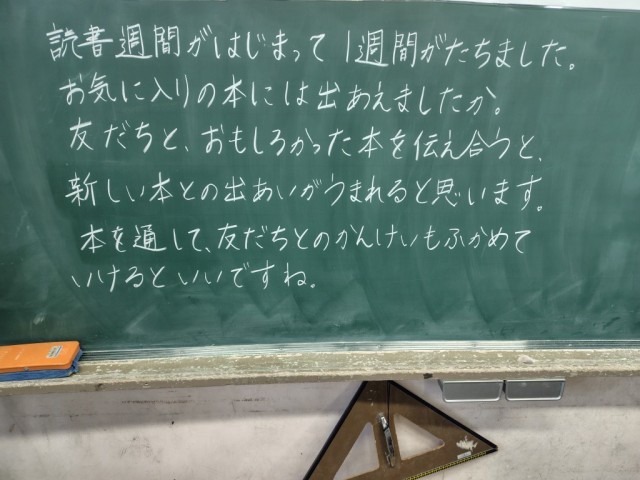 読書週間がはじまって1週間がたちました。
お気に入りの本には出あえましたか。
友だちと、おもしろかった本を伝え合うと、
新しい本との出あいがうまれると思います。
本を通して、友だちとのかんけいもふかめて
いけるといいですね。